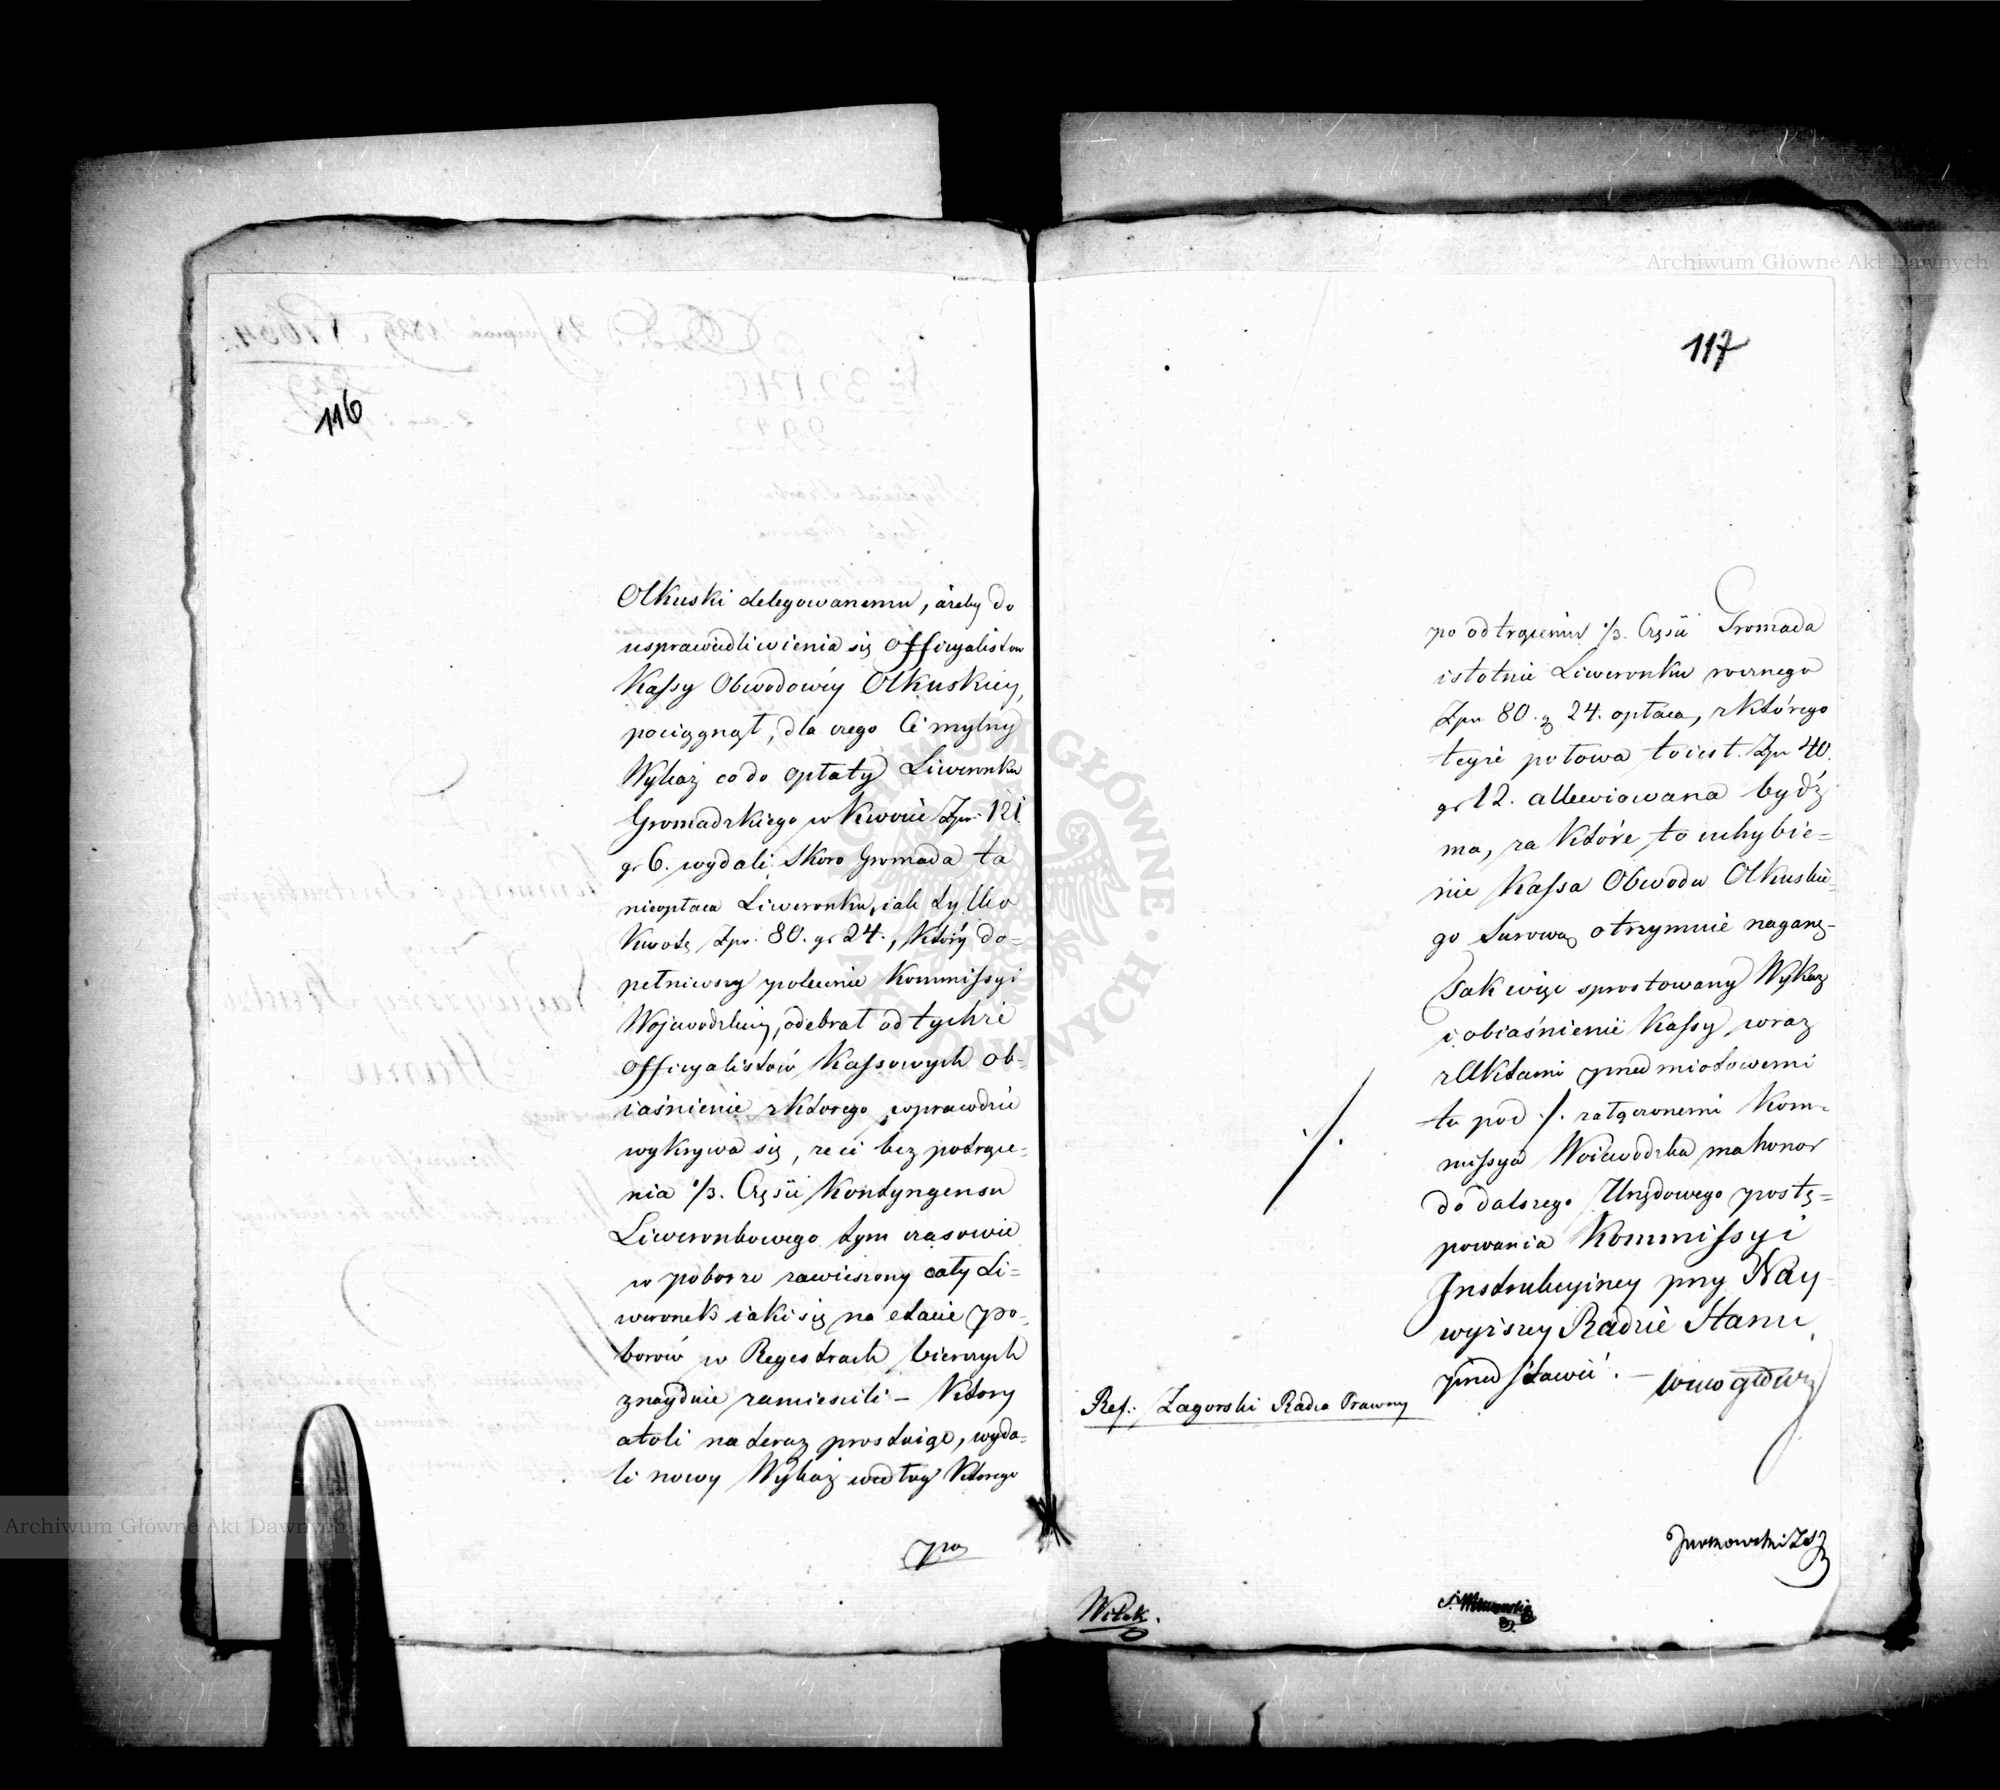 116
Olkuski delegowanemu, ażeby do
usprawiedliwienia się officyalistow
Kassy Obwodowéy Olkuskiey,
pociągnął, dla czego Ci mylny
Wykaz co do opłaty Liwerunku
Gromadzkiego w kwocie Zpu. 121
gr 6. wydali, skoro Gromada ta
nieopłaca Liwerunku, iak tylko
kwotę Zpu. 80. gr 24., który do=
pełniwszy polecenie Kommissyi
Wojewodzkiey, odebrał od tychże
officyalistów Kassowych ob-
iaśnienie z którego wprawdzie
wykrywa się, że ci bez potrące-
nia 1/3. Części Kontyngensu
Liwerunkowego tym czasowie
w poborze zawieszony cały Li=
werunek iaki się na etacie po-
borów w Regestrach bierczych
znayduie zamieścili – który
atoli nateraz prostuiąc, wyda-
li nowy Wykaz według którego
po
117
po odtrąceniu 1/3. Części Gromada
istotnie Liwerunku rocznego
Zpu 80. g 24. opłaca, z którego
teyże połowa to iest Zpu 40.
gr 12. allewiowana bydź
ma, za które to uchybie=
nie Kassa Obwodu Olkuskie-
go surową otrzymuie naganę-
Tak więc sprostowany Wykaz
i obiaśnienie Kassy wraz
z Aktami przedmiotowemi
tu pod ·/. załączonemi Kom-
missya Woiewodzka ma honor
do dalszego Urzędowego postę=
powania Kommissyi
Instrukcyiney przy Nay-
wyższey Radzie Stanu
przedstawić. –
·/.
Ref: Zagorski Radca Prawny
Witek.
Archiwum Główne Akt Dawnych
Archiwum Główne Akt Dawnych
ARCHIWUM GŁÓWNE AKT DAWNYCH